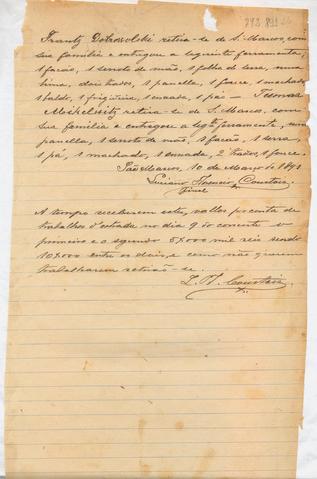 Frantz Dobrovolski retira-se de S. Marcos, com
sua familia e entregue a seguinte ferramenta,
1 facão, 1 serrote de mão, 1 folha de serra, uma
lima, dois trados, 1 panella, 1 fouce, 1 machado,
1 balde, 1 frigideira, 1 enxada, 1 pá —
retira-se de S. Marcos, com
sua familia e entregou a ferramenta, uma
panella, 1 serrote de mão, 1 facão, 1 serra,
1 pá, 1 machado, 1 enxada, 2 trados, 1 fouce.
São Marcos, 10 de Março de 1891
Luciano
A tempo receberem este, valles por conta de
trabalhos d'estrada no dia 9 do corrente o
primeiro e o segundo 5$000 mil reis sendo
10$000 entre os dois, e como não querem
trabalharem retirão-se.